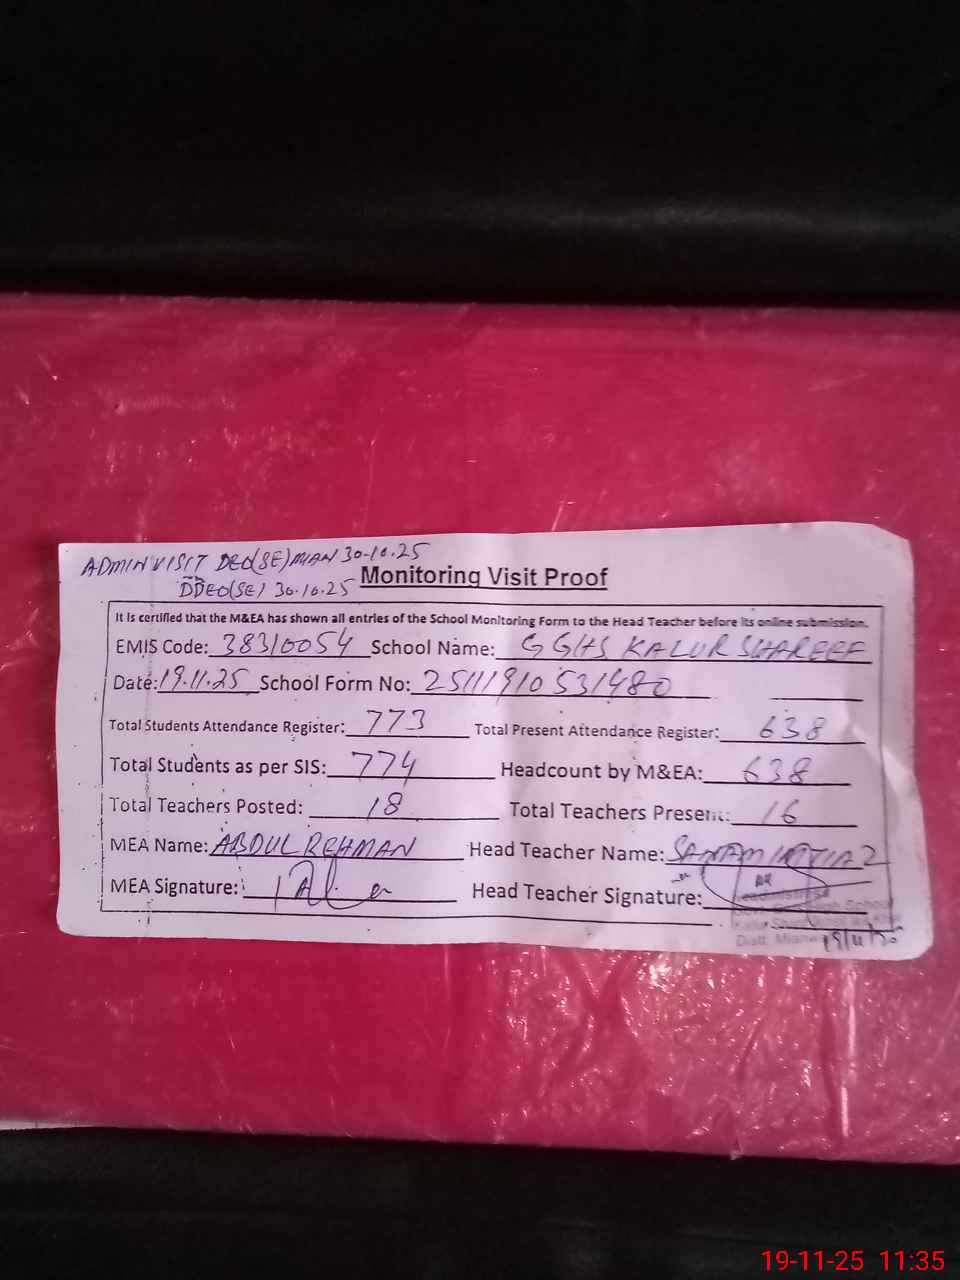 ADMIN VISIT DEO(SE) MIAN 30-10.25
DDEO(SE) 30.10.25
Monitoring Visit Proof
It is certified that the M&EA has shown all entries of the School Monitoring Form to the Head Teacher before its online submission.
EMIS Code: 38310054 School Name: GGHS KALUR SHAREEF
Date: 19.11.25 School Form No: 25111910531480
Total Students Attendance Register: 773 Total Present Attendance Register: 638
Total Students as per SIS: 774 Headcount by M&EA: 638
Total Teachers Posted: 18 Total Teachers Present: 16
MEA Name: ABDUL REHMAN Head Teacher Name: SANAM IMTIAZ
MEA Signature: Head Teacher Signature:
School
Distt.
19-11-25 11:35